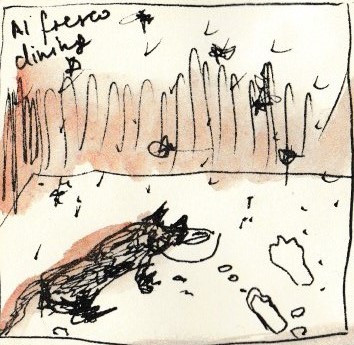 Al fresco
dining